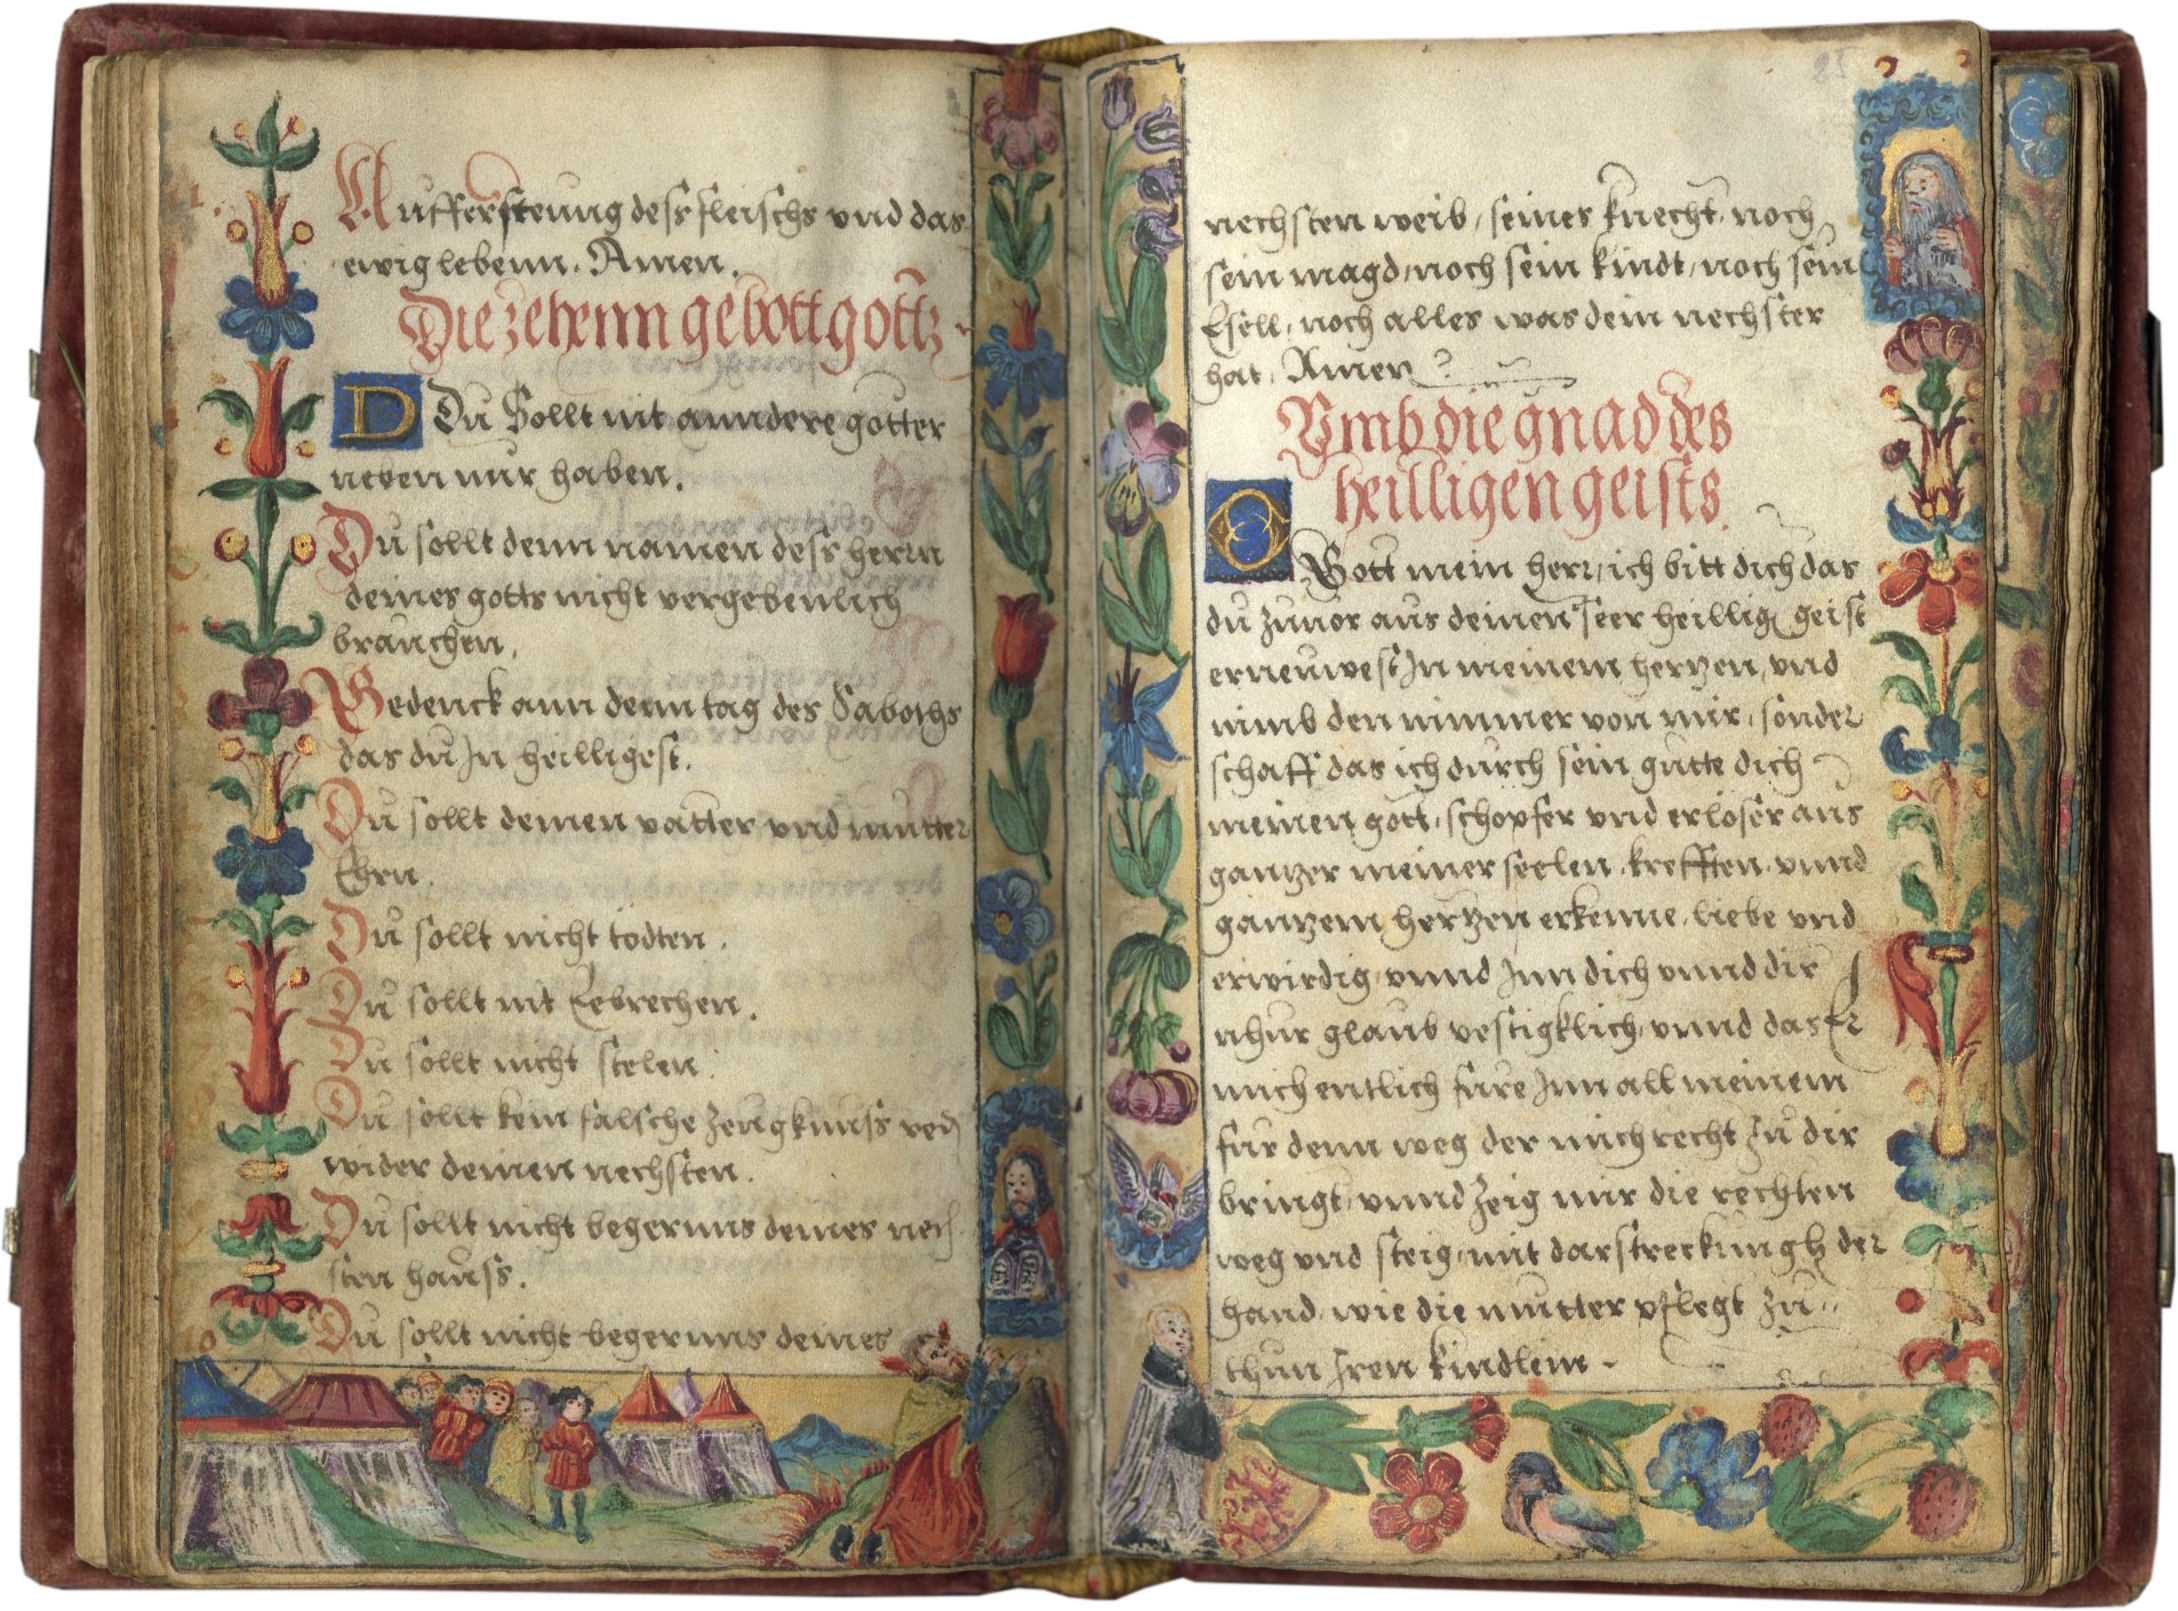 Auffersteung dess fleischs vnd das
ewig lebenn. Amen.
Die zehenn gebott gottz
D Du Sollt nit anndere götter
neben mir haben.
Du sollt denn namen dess herrn
deines gotts nicht vergebenlich
brauchen.
Gedenck ann denn tag des Saboths
das du In heilligest.
Du sollt deinen vatter vnd mutter
Ehrn.
Du sollt nicht tödten.
Du sollt nit Eebrechen.
Du sollt nicht stelen.
Du sollt kein falsche zeugknuss
wider deinen nechsten.
Du sollt nicht begernns deines nech
sten hauss.
Du sollt nicht begernns deines
25
nechsten weib, seines knecht, noch
sein magd, noch sein kindt, noch sein
Esell, noch alles was dein nechster
hat. Amen
Vmb die gnad des
heilligen geists.
O Gott mein herr, ich bitt dich das
du zuuor aus deinen seer heillig geist
erneuwest In meinem hertzen, vnd
nimb den nimmer von mir, sonder
schaff das ich durch sein gutte dich
meinen gott, schöpfer vnd erlöser aus
gantzer meiner seelen, krefften, vnnd
gantzem hertzen erkenne, liebe vnd
erwirdig, vnnd Inn dich vnnd dir
nhur glaub vestigklich, vnnd das Er
mich entlich füre Inn all meinem
für denn weg der mich recht zu dir
bringt, vnnd zeig mir die rechten
weg vnd steig, mit darstreckungh der
hand, wie die mutter pflegt zu
thun Iren kindlein.